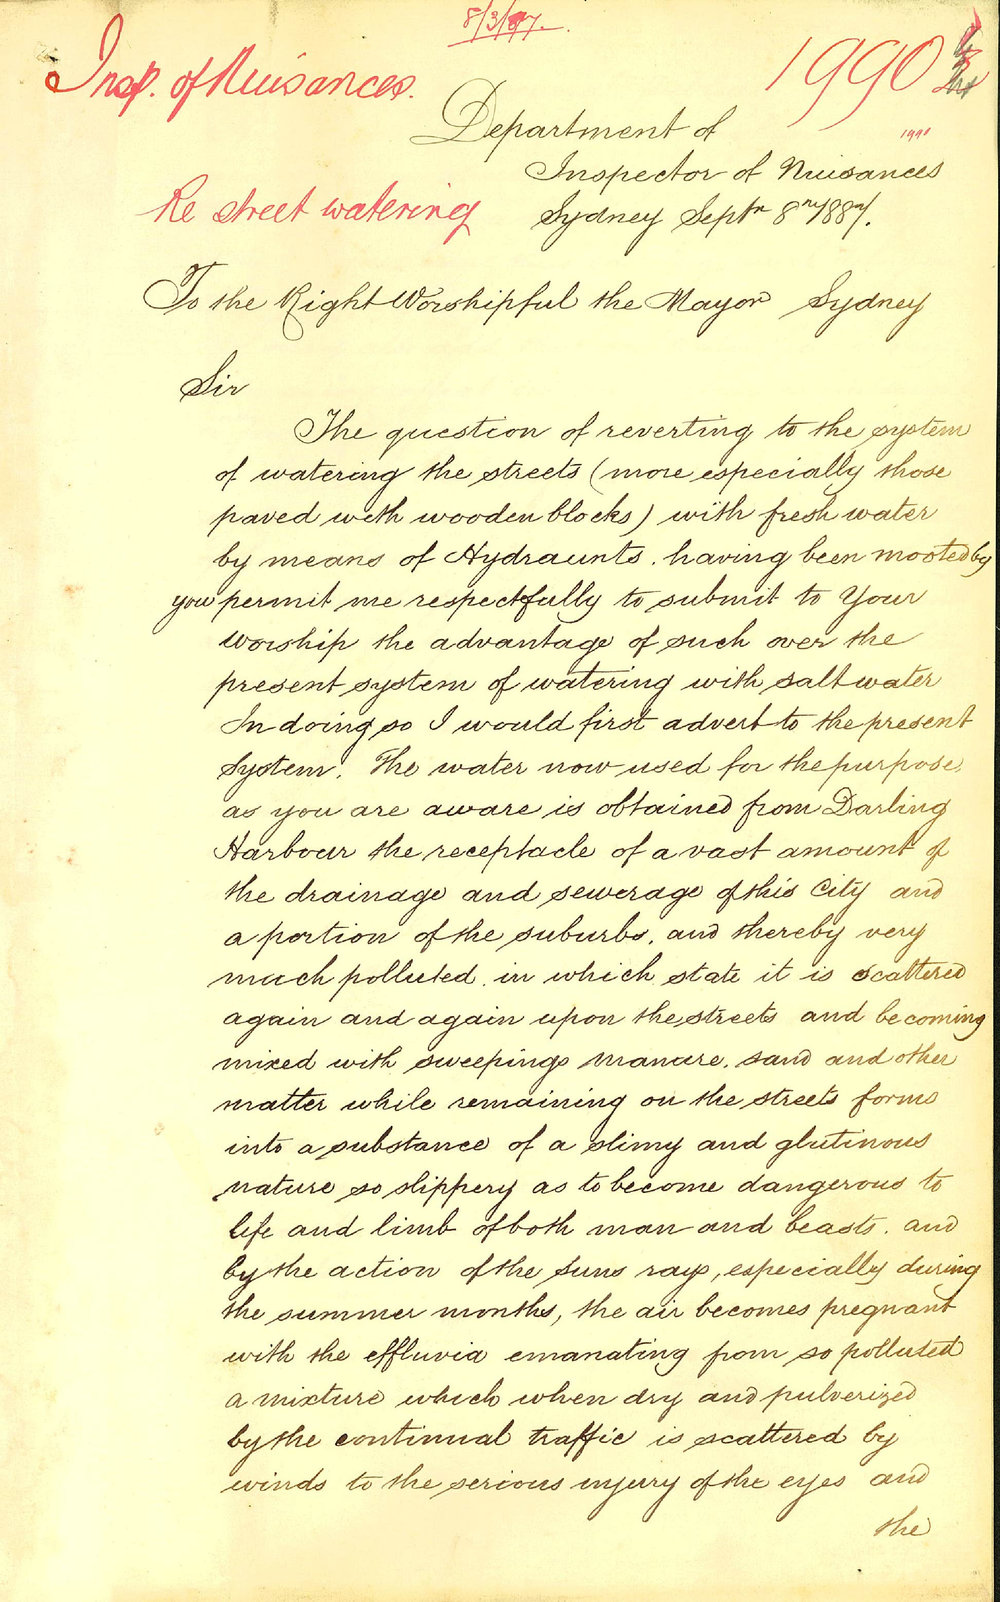 8/3/87.
Insp. of Nuisances.
1990
Department of
1990
Inspector of Nuisances
Re street watering
Sydney Septr 8th 1887.
To the Right Worshipful the Mayor Sydney
Sir
The question of reverting to the system
of watering the streets (more especially those
paved with wooden blocks) with fresh water
by means of Hydraunts. having been mooted by
you permit me respectfully to submit to Your
Worship the advantage of such over the
present system of watering with salt water
In doing so I would first advert to the present
System. The water now used for the purpose,
as you are aware is obtained from Darling
Harbour the receptacle of a vast amount of
the drainage and sewerage of this City and
a portion of the suburbs, and thereby very
much polluted. in which state it is scattered
again and again upon the streets and becoming
mixed with sweepings manure. sand and other
matter while remaining on the streets forms
into a substance of a slimy and glutinous
nature so slippery as to become dangerous to
life and limb of both man and beasts. and
by the action of the suns rays, especially during
the summer months, the air becomes pregnant
with the effluvia emanating from so polluted
a mixture which when dry and pulverized
by the continual traffic is scattered by
winds to the serious injury of the eyes and
the